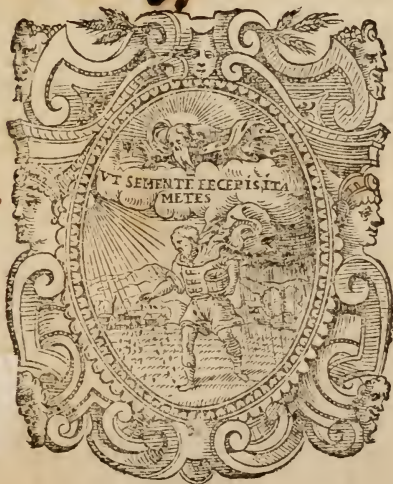 VT SEMENTE FECERIS, ITA
METES